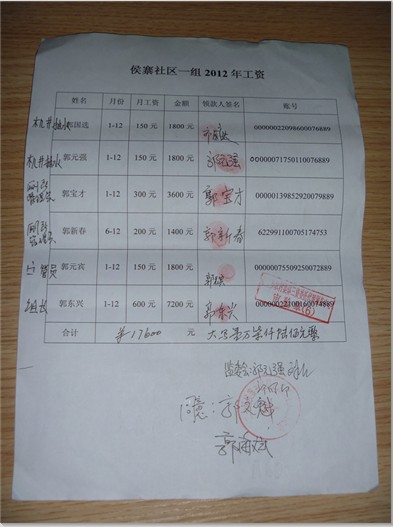 侯寨社区一组 2012 年工资
姓名 月份 月工资 金额 领款人签名 账号
机井抽水 郭国选 1-12 150 元 1800 元 郭国选 00000022098600076889
机井抽水 郭元强 1-12 150 元 1800 元 郭元强 00000071750110076889
郭宝才 1-12 300 元 3600 元 郭宝才 00000139852920079889
郭新春 6-12 200 元 1400 元 郭新春 622991100705174753
管员 郭元宾 1-12 150 元 1800 元 00000075509250072889
组长 郭东兴 1-12 600 元 7200 元 郭东兴 000000022100160074889
合计 17600 元 大写 万 仟 佰元整
监督: 郭元强
同意: 郭文
郭